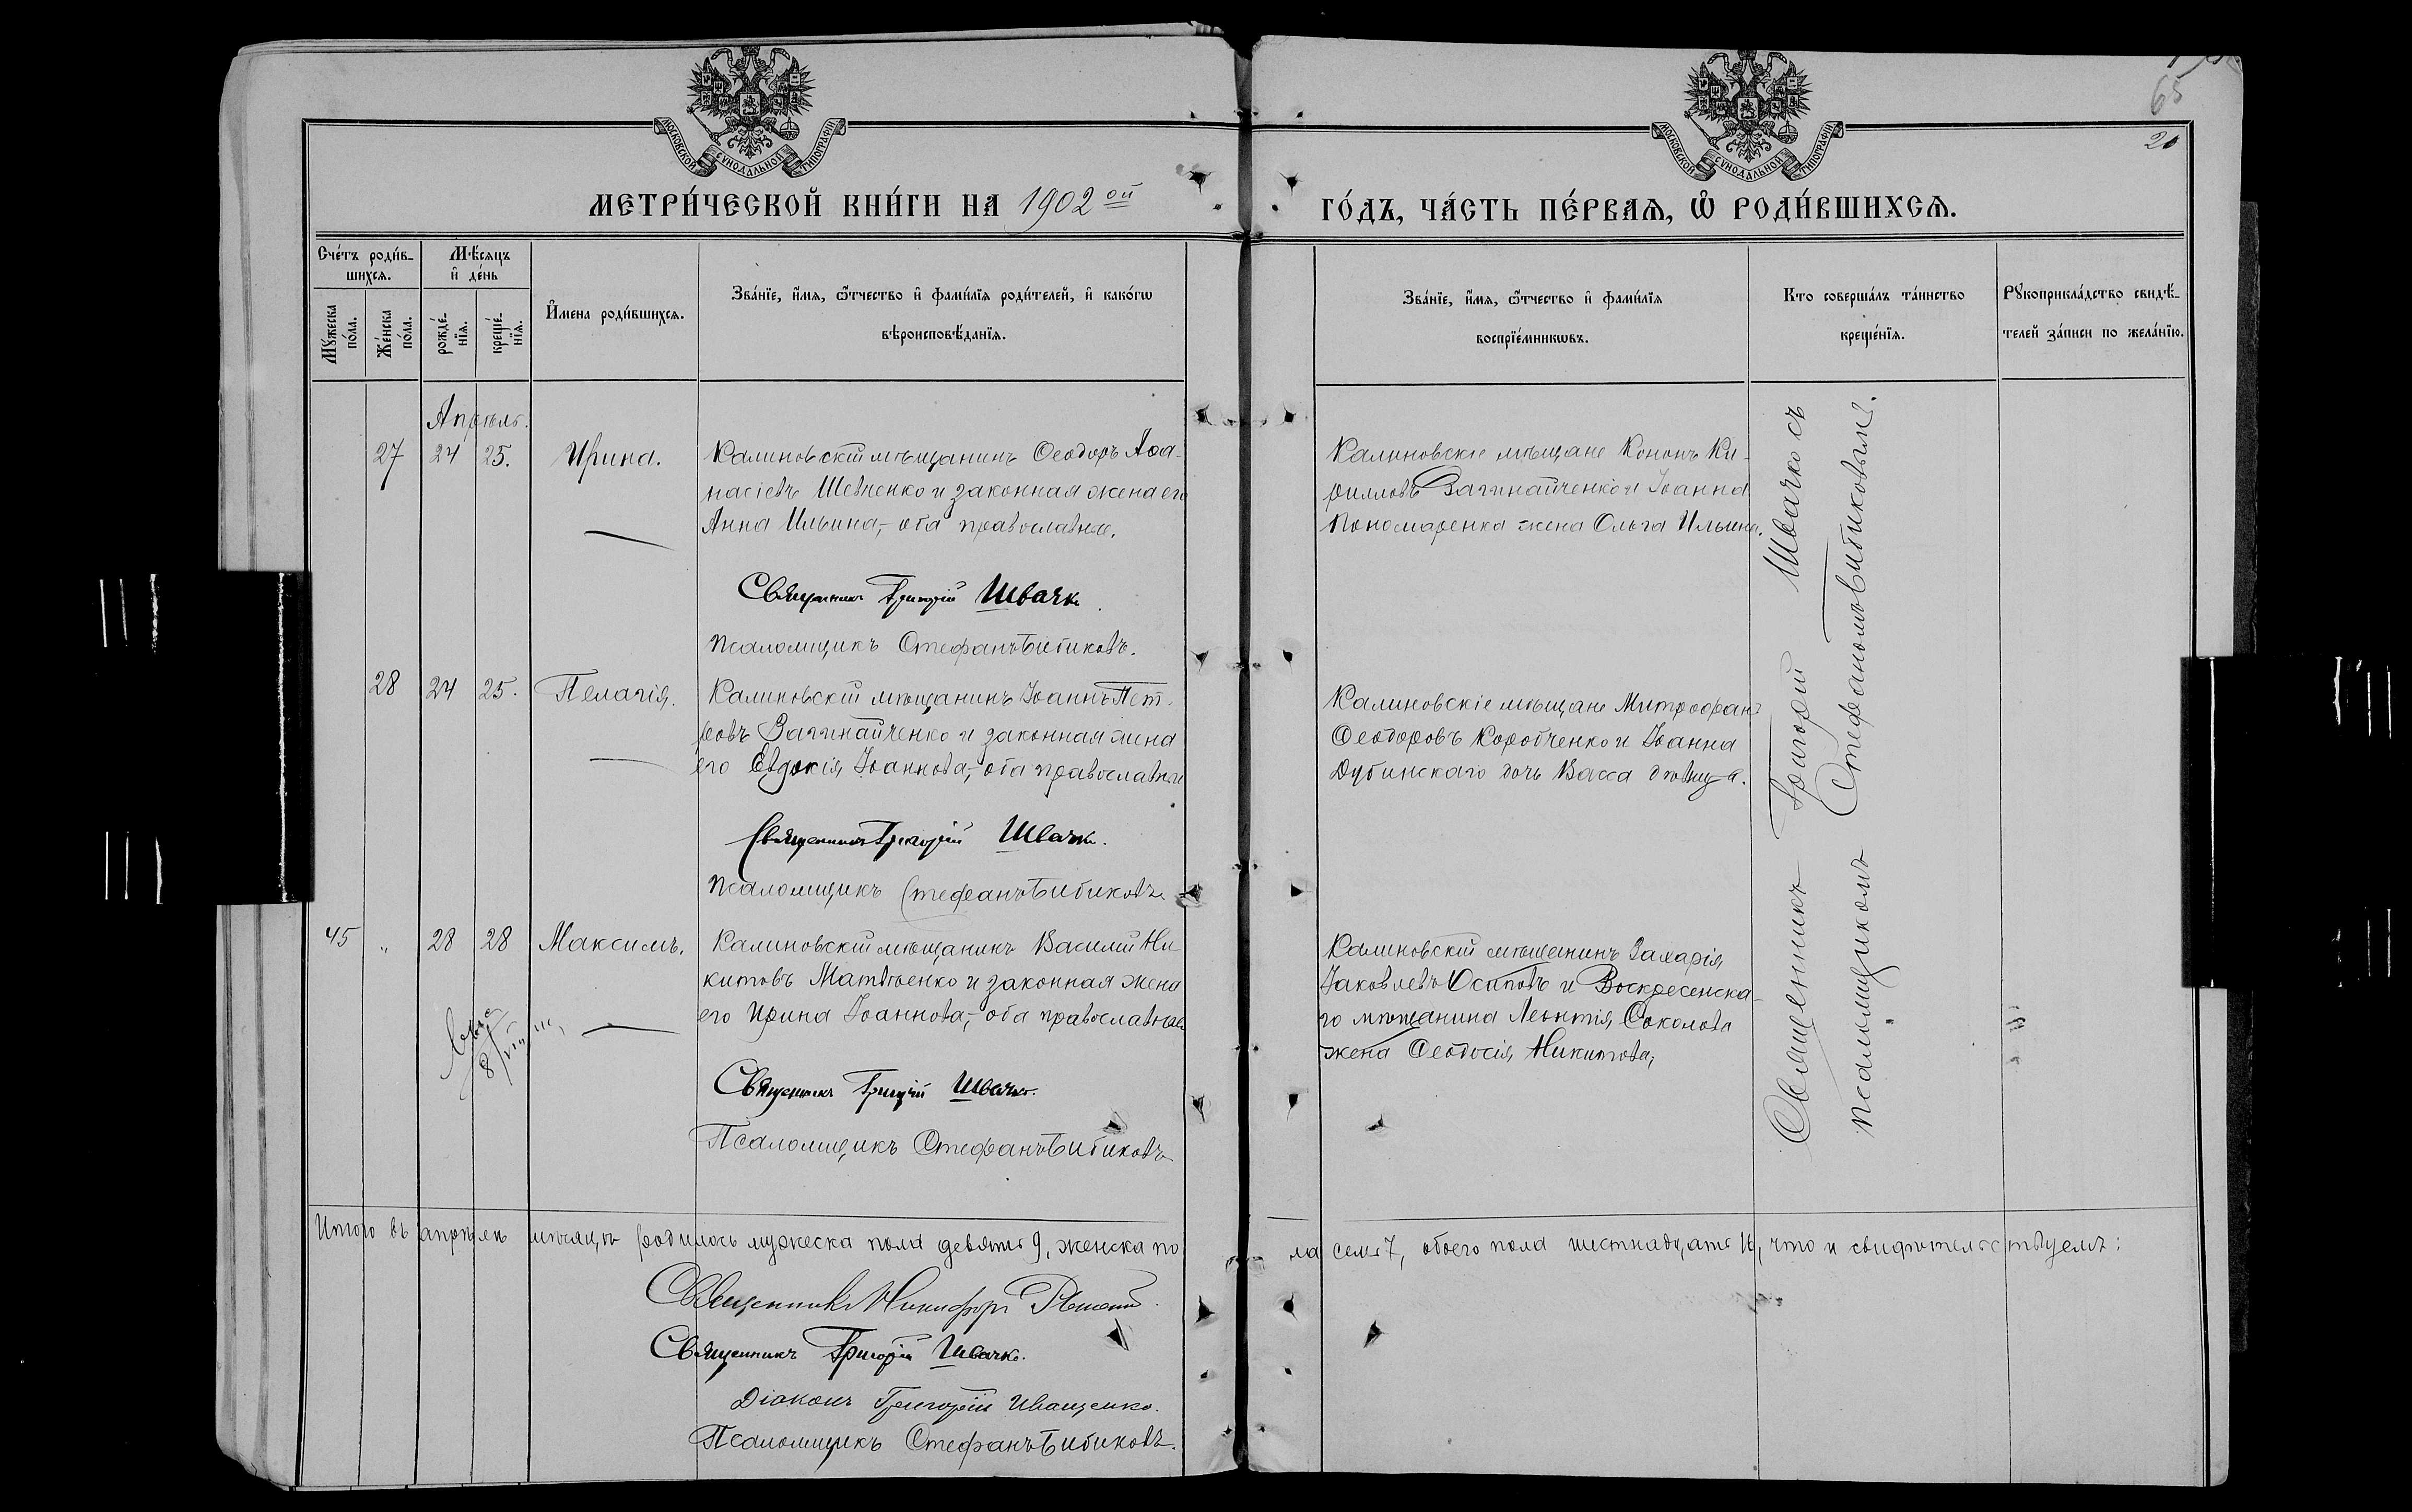 65
20
МОСКОВСКОЙ СѴНОДАЛЬНОЙ ТИПОГРАФІИ
МОСКОВСКОЙ СѴНОДАЛЬНОЙ ТИПОГРАФІИ
МЕТРИ́ЧЕСКОЙ КНИ́ГИ НА 1902 ой
ГО́ДЪ, ЧА́СТЬ ПЕ́РВАѦ, Ѽ РОДИ́ВШИХСѦ.
Сче́тъ роди́в-
шихсѧ.
Мѣ́сѧцъ
и҆ де́нь
Мꙋ́жеска
по́ла.
Же́нска
по́ла.
рожде́-
нїѧ.
креще́-
нїѧ.
И҆мена роди́вшихсѧ.
Зва́нїе, и҆́мѧ, ѿтчество и҆ фами́лїѧ роди́телей, и҆ како́гѡ
вѣроисповѣ́данїѧ.
Зва́нїе, и҆́мѧ, ѿтчество и҆ фами́лїѧ
воспрїе́мникѡвъ.
Кто соверша́лъ та́инство
креще́нїѧ.
Рꙋкоприкла́дство свидѣ́-
телей за́писи по жела́нїю.
Апрѣль.
27 24 25. Ирина. Калиновскій мѣщанинъ Ѳеодоръ Аѳа-
насіевъ Шевченко и законная жена его
Анна Ильина,- оба православные.
Священникъ Григорій Швачко
Псаломщикъ Стефанъ Бибиковъ.
Калиновскіе мѣщане Кононъ Ки-
рилловъ Вагинайченко и Іоанна
Пономаренка жена Ольга Ильина.
28 24 25. Пелагія. Калиновскій мѣщанинъ Іоаннъ Пет-
ровъ Вагинайченко и законная жена
его Евдокія Іоаннова,- оба православные
Священникъ Григорій Швачко.
Псаломщикъ Стефанъ Бибиковъ
Калиновскіе мѣщане Митрофанъ
Ѳеодоровъ Коробченко и Іоанна
Дубинскаго дочь Васса дѣвица.
45 " 28 28 Максимъ. Калиновскій мѣщанинъ Василій Ни-
китовъ Матвѣенко и законная жена
его Ирина Іоаннова,- оба православные
Священникъ Григорій Швачко.
Псаломщикъ Стефанъ Бибиковъ
Калиновскій мѣщанинъ Захарія
Іаковлевъ Осиповъ и Воскресенска-
го мѣщанина Леонтія Соколова
жена Ѳеодосія Никитова,
Священникъ Григорій Швачко съ
псаломщикомъ Стефаномъ Бибиковымъ.
Итого въ апрѣлѣ мѣсяцѣ родилось мужеска пола девять 9, женска по
ла семь 7, обоего пола шестнадцать 16, что и свидѣтельствуемъ:
Священникъ Никифоръ
Священникъ Григорій Швачко.
Діаконъ Григорій Иващенко.
Псаломщикъ Стефанъ Бибиковъ.